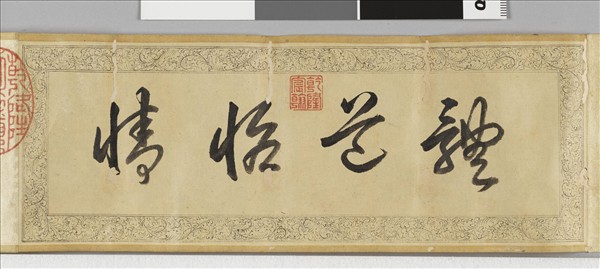 體道怡情
乾隆宸翰